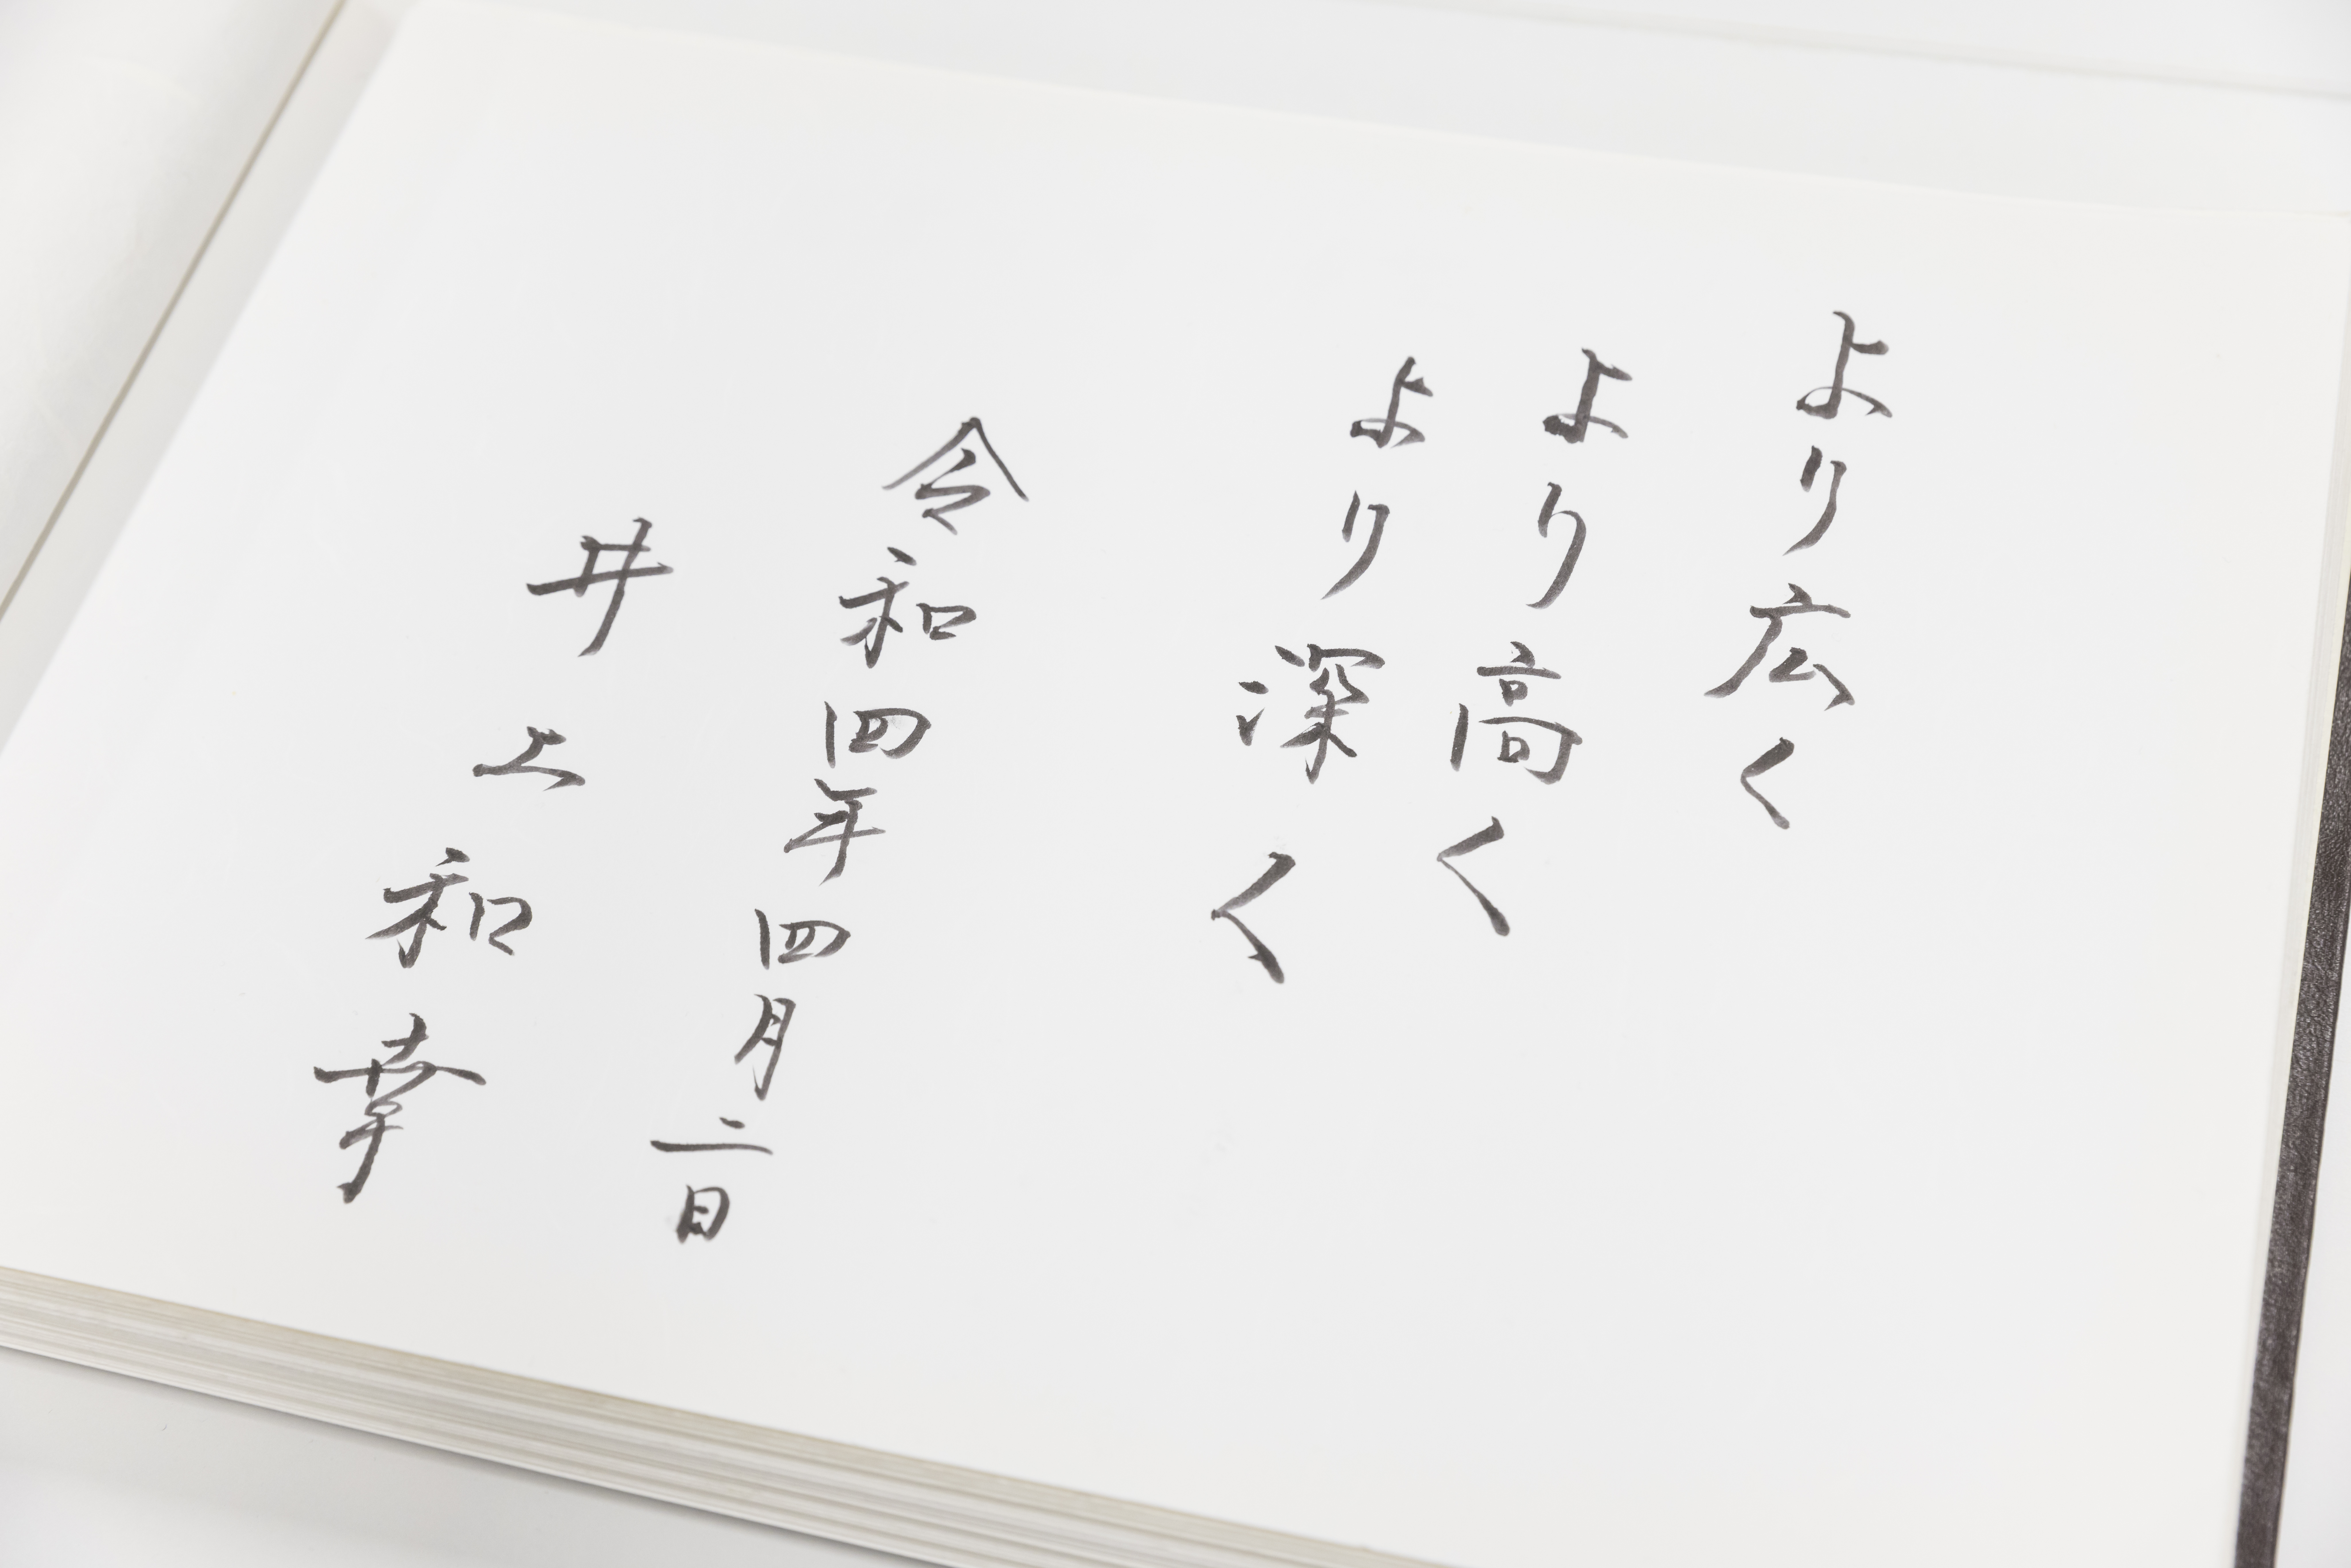 より広く
より高く
より深く
令和四年四月二日
井上和幸